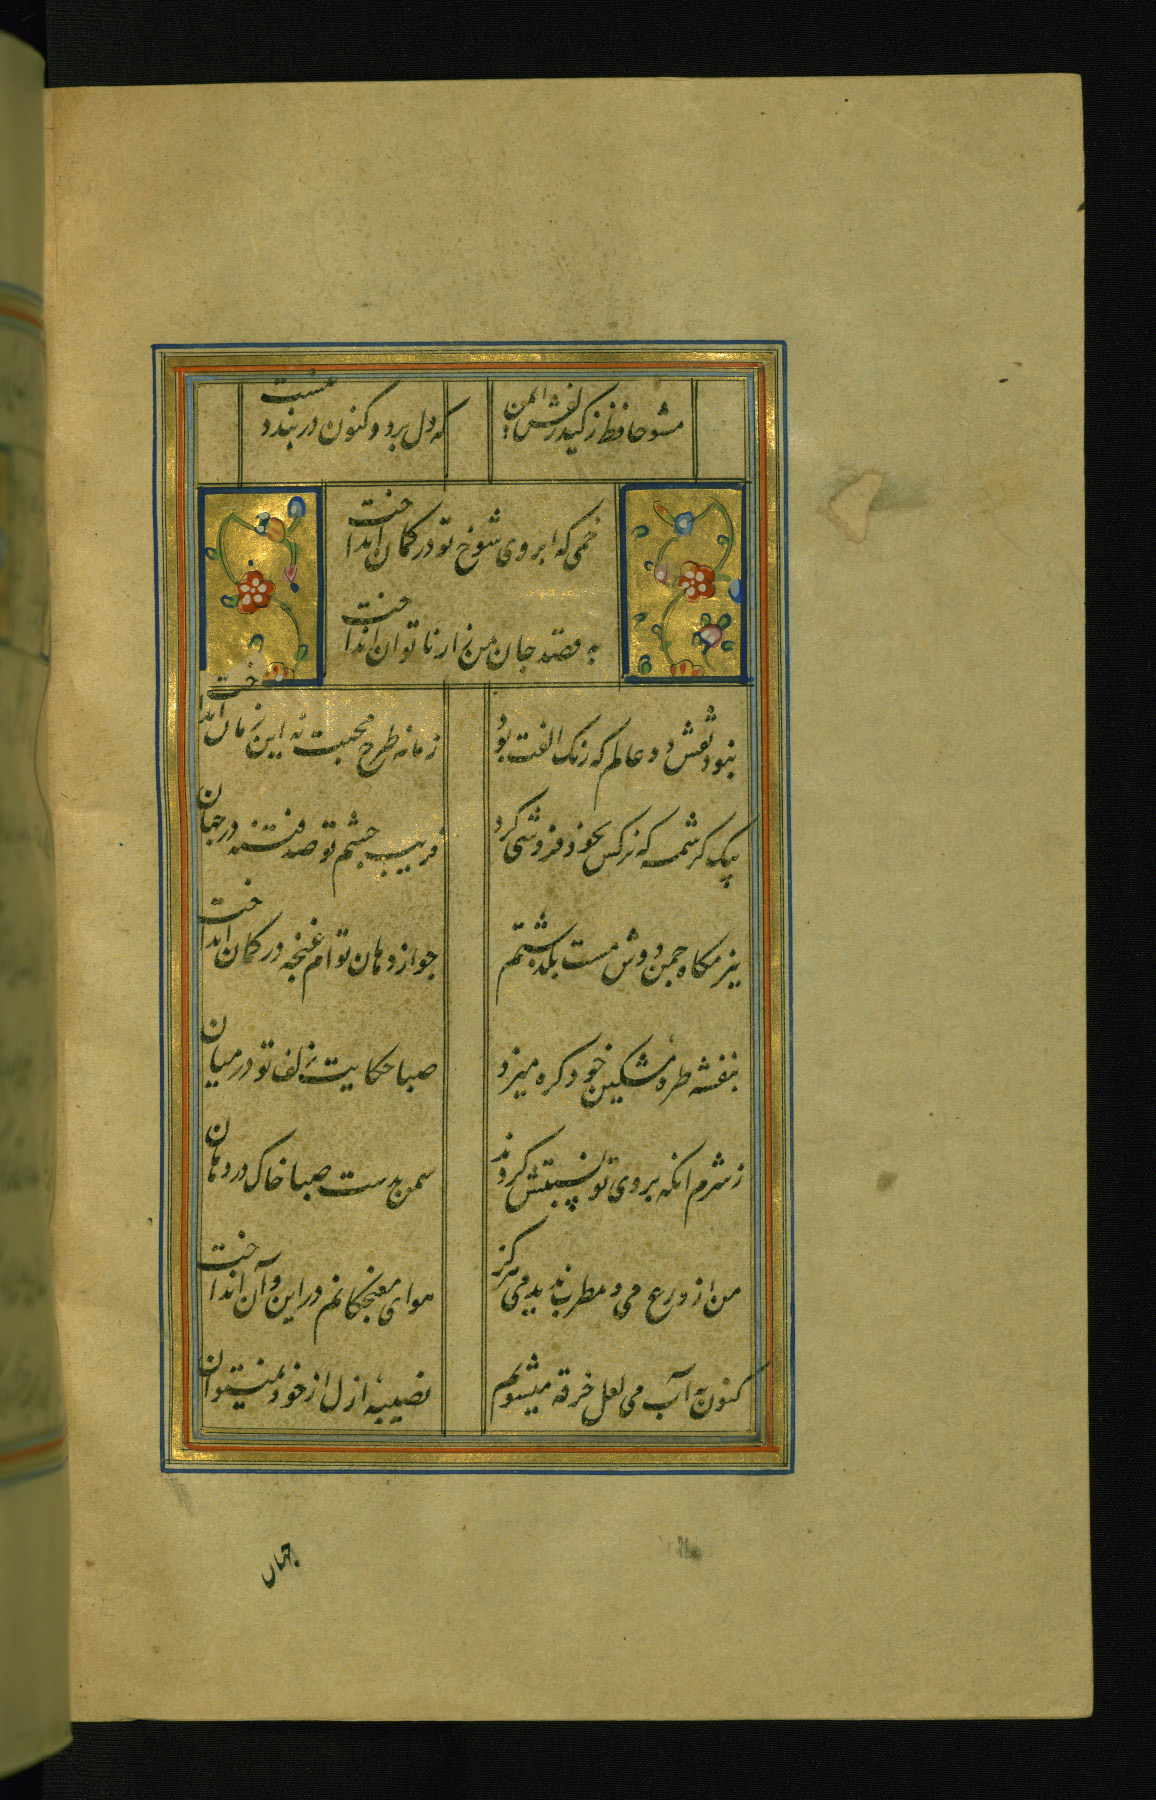 مشو حافظ ز کید زلفش ایمن
که دل برد و کنون در بند دینست
خمی که ابروی شوخ تو در کمان انداخت
به قصد جان من زار ناتوان انداخت
نبود نقش دو عالم که رنک الفت بود
زمانه طرح محبت نه این زمان انداخت
بیک کرشمه که نرکس بخود فروشی کرد
فریب چشم تو صد فتنه در جهان
ببزمکاه چمن دوش مست بکذشتم
چو از دهان توام غنچه در کمان انداخت
بنفشه طره مشکین خود کره میزد
صبا حکایت زلف تو در میان
ز شرم انکه بروی تو نسبتش کردند
سمن بدست صبا خاک در دهان
من از ورع می و مطرب ندیدمی هرکز
هوای مغبچکانم در این و آن انداخت
کنون به آب می لعل خرقه میشویم
نصیبه ازل از خود نمیتوان
جهان